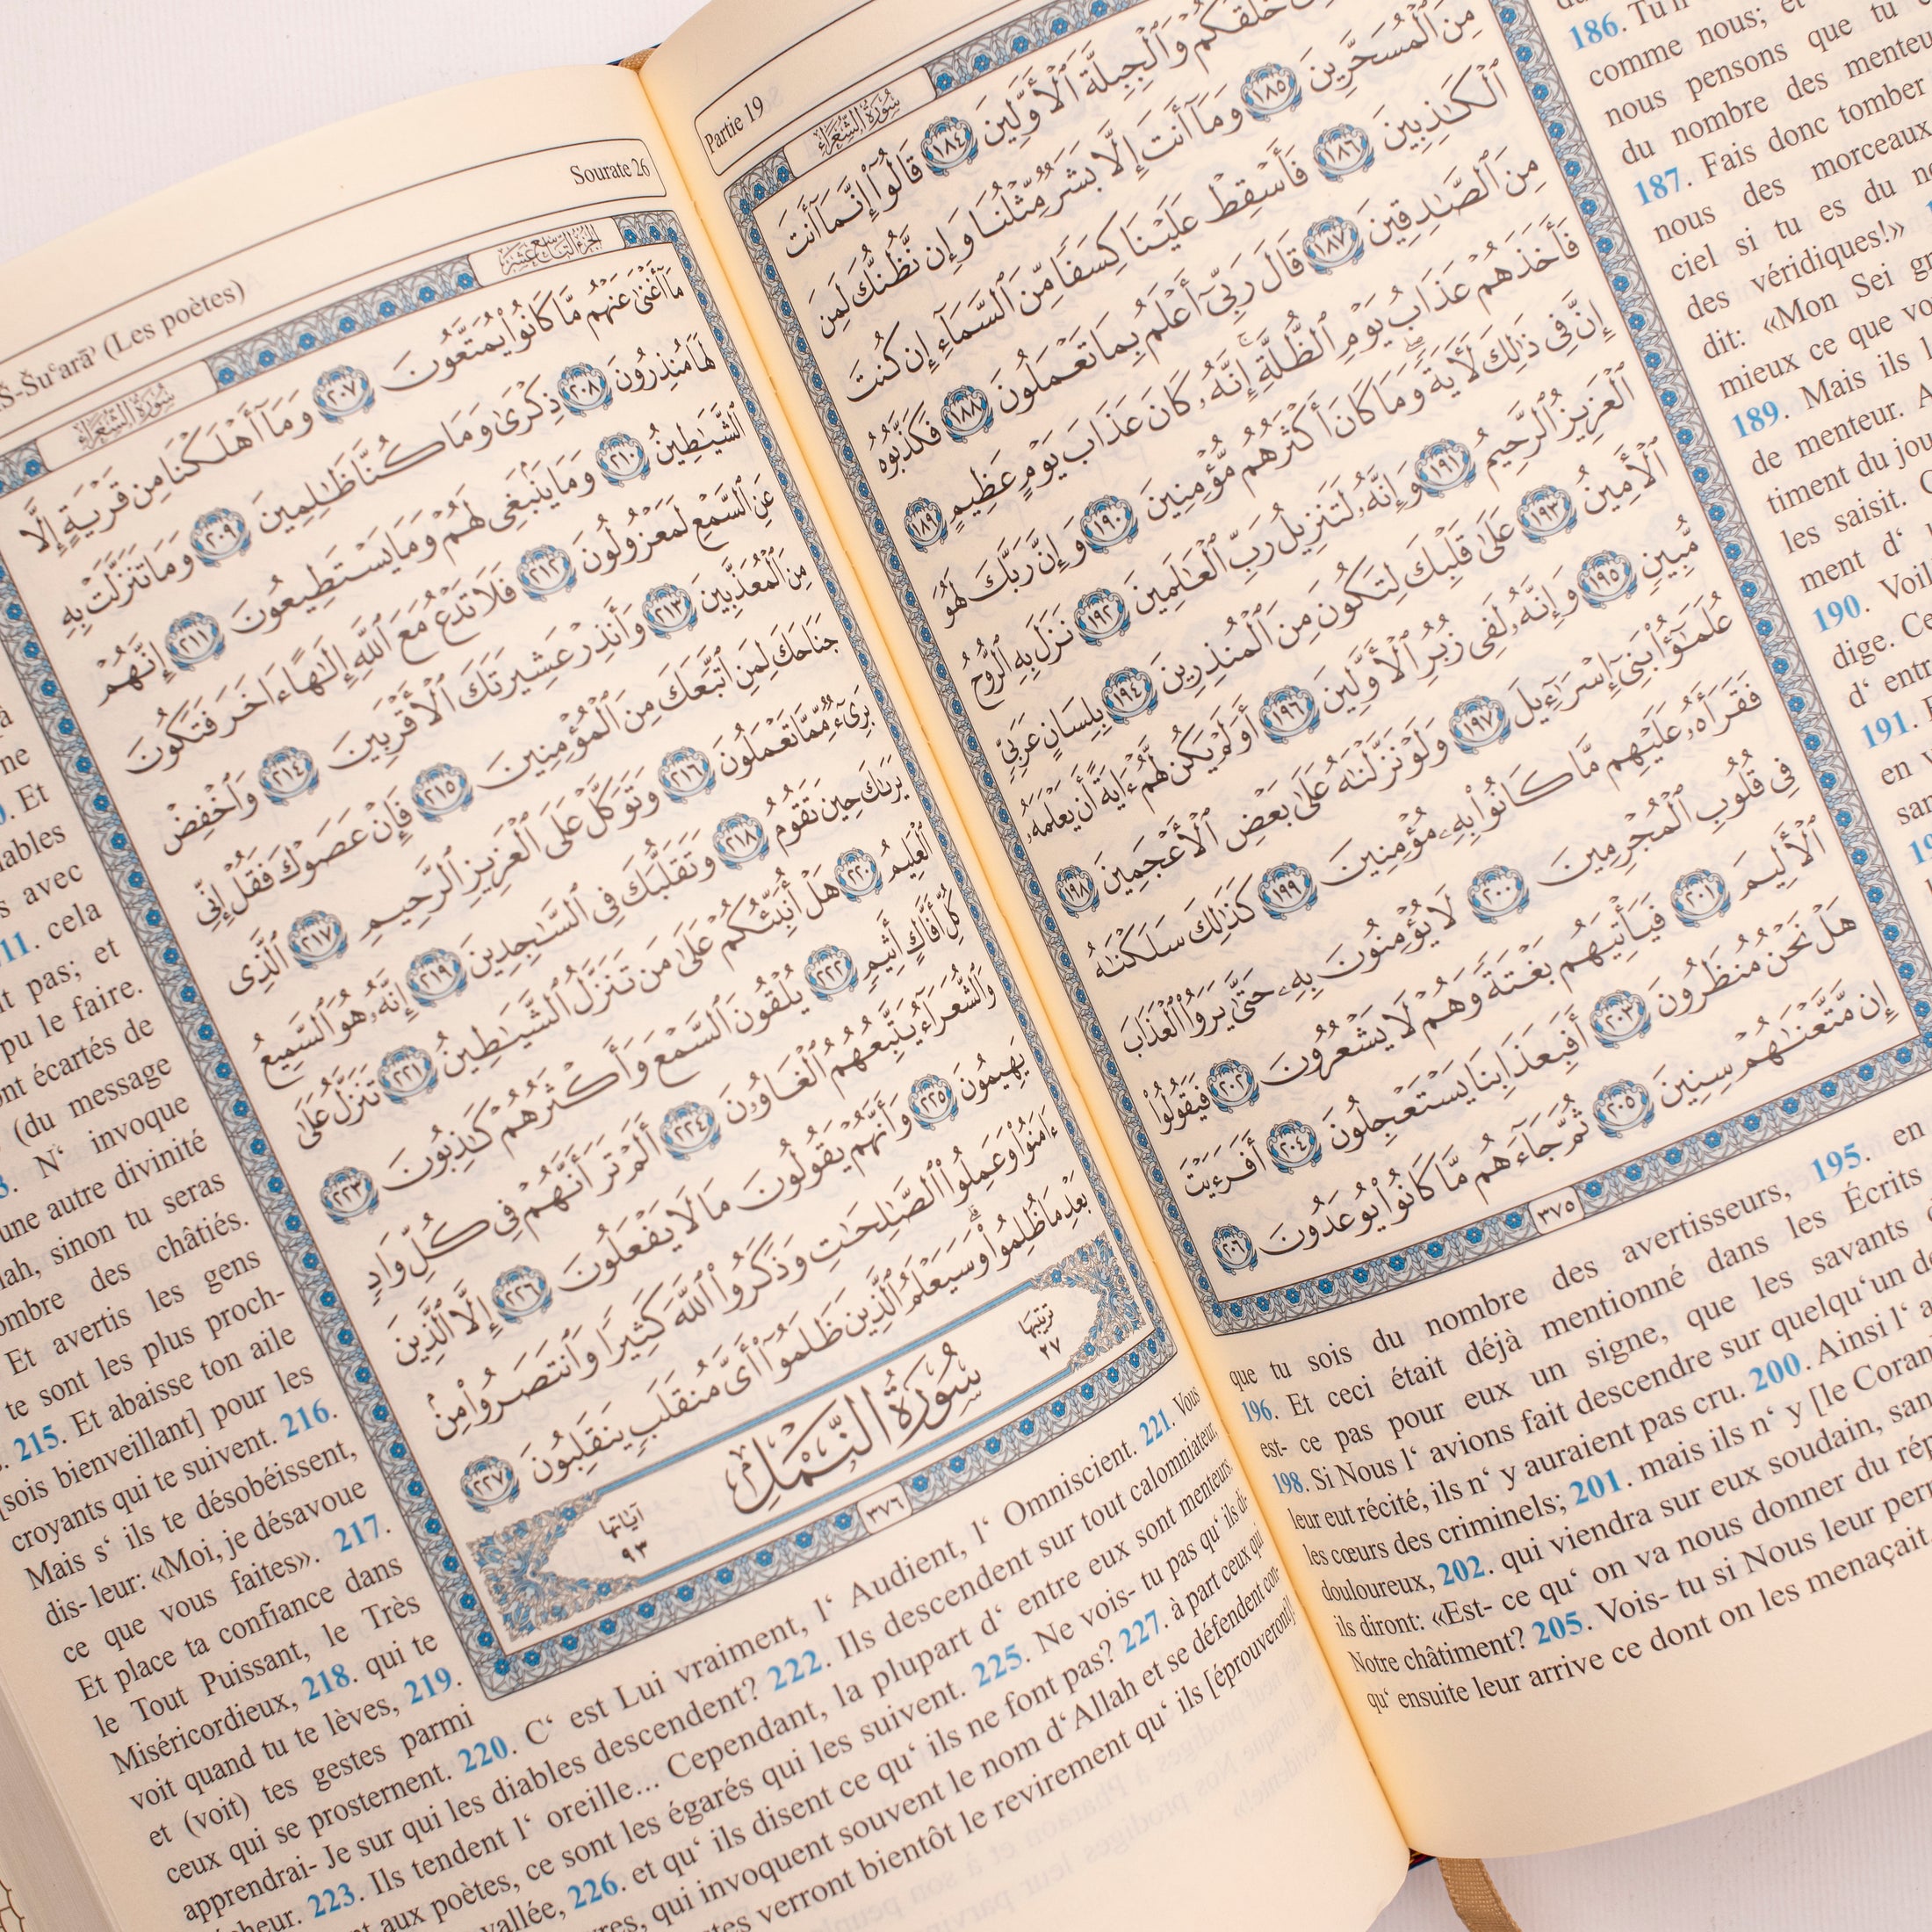 Partie 19
سُورَةُ الشُّعَرَاءِ
خَلَقَكُمْ وَٱلْجِبِلَّةَ ٱلْأَوَّلِينَ ١٨٤ قَالُوٓا۟ إِنَّمَآ أَنتَ
مِنَ ٱلْمُسَحَّرِينَ ١٨٥ وَمَآ أَنتَ إِلَّا بَشَرٌ مِّثْلُنَا وَإِن نَّظُنُّكَ لَمِنَ
ٱلْكَـٰذِبِينَ ١٨٦ فَأَسْقِطْ عَلَيْنَا كِسَفًا مِّنَ ٱلسَّمَآءِ إِن كُنتَ
مِنَ ٱلصَّـٰدِقِينَ ١٨٧ قَالَ رَبِّىٓ أَعْلَمُ بِمَا تَعْمَلُونَ ١٨٨ فَكَذَّبُوهُ
فَأَخَذَهُمْ عَذَابُ يَوْمِ ٱلظُّلَّةِ ۚ إِنَّهُۥ كَانَ عَذَابَ يَوْمٍ عَظِيمٍ ١٨٩
إِنَّ فِى ذَٰلِكَ لَـَٔايَةً ۖ وَمَا كَانَ أَكْثَرُهُم مُّؤْمِنِينَ ١٩٠ وَإِنَّ رَبَّكَ لَهُوَ
ٱلْعَزِيزُ ٱلرَّحِيمُ ١٩١ وَإِنَّهُۥ لَتَنزِيلُ رَبِّ ٱلْعَـٰلَمِينَ ١٩٢ نَزَلَ بِهِ ٱلرُّوحُ
ٱلْأَمِينُ ١٩٣ عَلَىٰ قَلْبِكَ لِتَكُونَ مِنَ ٱلْمُنذِرِينَ ١٩٤ بِلِسَانٍ عَرَبِىٍّ
مُّبِينٍ ١٩٥ وَإِنَّهُۥ لَفِى زُبُرِ ٱلْأَوَّلِينَ ١٩٦ أَوَلَمْ يَكُن لَّهُمْ ءَايَةً أَن يَعْلَمَهُۥ
عُلَمَـٰٓؤُا۟ بَنِىٓ إِسْرَٰٓءِيلَ ١٩٧ وَلَوْ نَزَّلْنَـٰهُ عَلَىٰ بَعْضِ ٱلْأَعْجَمِينَ ١٩٨
فَقَرَأَهُۥ عَلَيْهِم مَّا كَانُوا۟ بِهِۦ مُؤْمِنِينَ ١٩٩ كَذَٰلِكَ سَلَكْنَـٰهُ
فِى قُلُوبِ ٱلْمُجْرِمِينَ ٢٠٠ لَا يُؤْمِنُونَ بِهِۦ حَتَّىٰ يَرَوُا۟ ٱلْعَذَابَ
ٱلْأَلِيمَ ٢٠١ فَيَأْتِيَهُم بَغْتَةً وَهُمْ لَا يَشْعُرُونَ ٢٠٢ فَيَقُولُوا۟
هَلْ نَحْنُ مُنظَرُونَ ٢٠٣ أَفَبِعَذَابِنَا يَسْتَعْجِلُونَ ٢٠٤ أَفَرَءَيْتَ
إِن مَّتَّعْنَـٰهُمْ سِنِينَ ٢٠٥ ثُمَّ جَآءَهُم مَّا كَانُوا۟ يُوعَدُونَ ٢٠٦
٣٧٥
186. Tu n'
comme nous; et
nous pensons que tu
du nombre des menteu
187. Fais donc tomber
nous des morceaux
ciel si tu es du
des véridiques!»
dit: «Mon Sei
mieux ce que vo
189. Mais ils
de menteur.
timent du jou
les saisit.
ment d'
190. Voil
dige. Ce
d' entr
191.
en
que tu sois du nombre des avertisseurs, 195. en
196. Et ceci était déjà mentionné dans les Écrits
est- ce pas pour eux un signe, que les savants
198. Si Nous l' avions fait descendre sur quelqu'un de
leur eut récité, ils n' y auraient pas cru. 200. Ainsi l'
les cœurs des criminels; 201. mais ils n' y [le Coran
douloureux, 202. qui viendra sur eux soudain, san
ils diront: «Est- ce qu' on va nous donner du rép
Notre châtiment? 205. Vois- tu si Nous leur perm
qu' ensuite leur arrive ce dont on les menaçait
Sourate 26
Š-Šuʿarāʾ (Les poètes)
الجزء التاسع عشر
سُورَةُ الشُّعَرَاءِ
مَآ أَغْنَىٰ عَنْهُم مَّا كَانُوا۟ يُمَتَّعُونَ ٢٠٧ وَمَآ أَهْلَكْنَا مِن قَرْيَةٍ إِلَّا
لَهَا مُنذِرُونَ ٢٠٨ ذِكْرَىٰ وَمَا كُنَّا ظَـٰلِمِينَ ٢٠٩ وَمَا تَنَزَّلَتْ بِهِ
ٱلشَّيَـٰطِينُ ٢١٠ وَمَا يَنۢبَغِى لَهُمْ وَمَا يَسْتَطِيعُونَ ٢١١ إِنَّهُمْ
عَنِ ٱلسَّمْعِ لَمَعْزُولُونَ ٢١٢ فَلَا تَدْعُ مَعَ ٱللَّهِ إِلَـٰهًا ءَاخَرَ فَتَكُونَ
مِنَ ٱلْمُعَذَّبِينَ ٢١٣ وَأَنذِرْ عَشِيرَتَكَ ٱلْأَقْرَبِينَ ٢١٤ وَٱخْفِضْ
جَنَاحَكَ لِمَنِ ٱتَّبَعَكَ مِنَ ٱلْمُؤْمِنِينَ ٢١٥ فَإِنْ عَصَوْكَ فَقُلْ إِنِّى
بَرِىٓءٌ مِّمَّا تَعْمَلُونَ ٢١٦ وَتَوَكَّلْ عَلَى ٱلْعَزِيزِ ٱلرَّحِيمِ ٢١٧ ٱلَّذِى
يَرَىٰكَ حِينَ تَقُومُ ٢١٨ وَتَقَلُّبَكَ فِى ٱلسَّـٰجِدِينَ ٢١٩ إِنَّهُۥ هُوَ ٱلسَّمِيعُ
ٱلْعَلِيمُ ٢٢٠ هَلْ أُنَبِّئُكُمْ عَلَىٰ مَن تَنَزَّلُ ٱلشَّيَـٰطِينُ ٢٢١ تَنَزَّلُ عَلَىٰ
كُلِّ أَفَّاكٍ أَثِيمٍ ٢٢٢ يُلْقُونَ ٱلسَّمْعَ وَأَكْثَرُهُمْ كَـٰذِبُونَ ٢٢٣
وَٱلشُّعَرَآءُ يَتَّبِعُهُمُ ٱلْغَاوُۥنَ ٢٢٤ أَلَمْ تَرَ أَنَّهُمْ فِى كُلِّ وَادٍ
يَهِيمُونَ ٢٢٥ وَأَنَّهُمْ يَقُولُونَ مَا لَا يَفْعَلُونَ ٢٢٦ إِلَّا ٱلَّذِينَ
ءَامَنُوا۟ وَعَمِلُوا۟ ٱلصَّـٰلِحَـٰتِ وَذَكَرُوا۟ ٱللَّهَ كَثِيرًا وَٱنتَصَرُوا۟ مِنۢ
بَعْدِ مَا ظُلِمُوا۟ ۗ وَسَيَعْلَمُ ٱلَّذِينَ ظَلَمُوٓا۟ أَىَّ مُنقَلَبٍ يَنقَلِبُونَ ٢٢٧
ترتيبها ٢٧
سُورَةُ النَّمْلِ
آياتها ٩٣
٣٧٦
à
ne
Et
ables
s avec
11. cela
t pas; et
pu le faire.
nt écartés de
(du message
N' invoque
une autre divinité
lah, sinon tu seras
ombre des châtiés.
Et avertis les gens
te sont les plus proch-
215. Et abaisse ton aile
[sois bienveillant] pour les
croyants qui te suivent. 216.
Mais s' ils te désobéissent,
dis- leur: «Moi, je désavoue
ce que vous faites». 217.
Et place ta confiance dans
le Tout Puissant, le Très
Miséricordieux, 218. qui te
voit quand tu te lèves, 219.
et (voit) tes gestes parmi
ceux qui se prosternent. 220. C' est Lui vraiment, l' Audient, l' Omniscient. 221. Vous
apprendrai- Je sur qui les diables descendent? 222. Ils descendent sur tout calomniateur,
cheur. 223. Ils tendent l' oreille... Cependant, la plupart d' entre eux sont menteurs.
t aux poètes, ce sont les égarés qui les suivent. 225. Ne vois- tu pas qu' ils di-
vallée, 226. et qu' ils disent ce qu' ils ne font pas? 227. à part ceux qui
res, qui invoquent souvent le nom d'Allah et se défendent con-
tes verront bientôt le revirement qu' ils [éprouveront]!